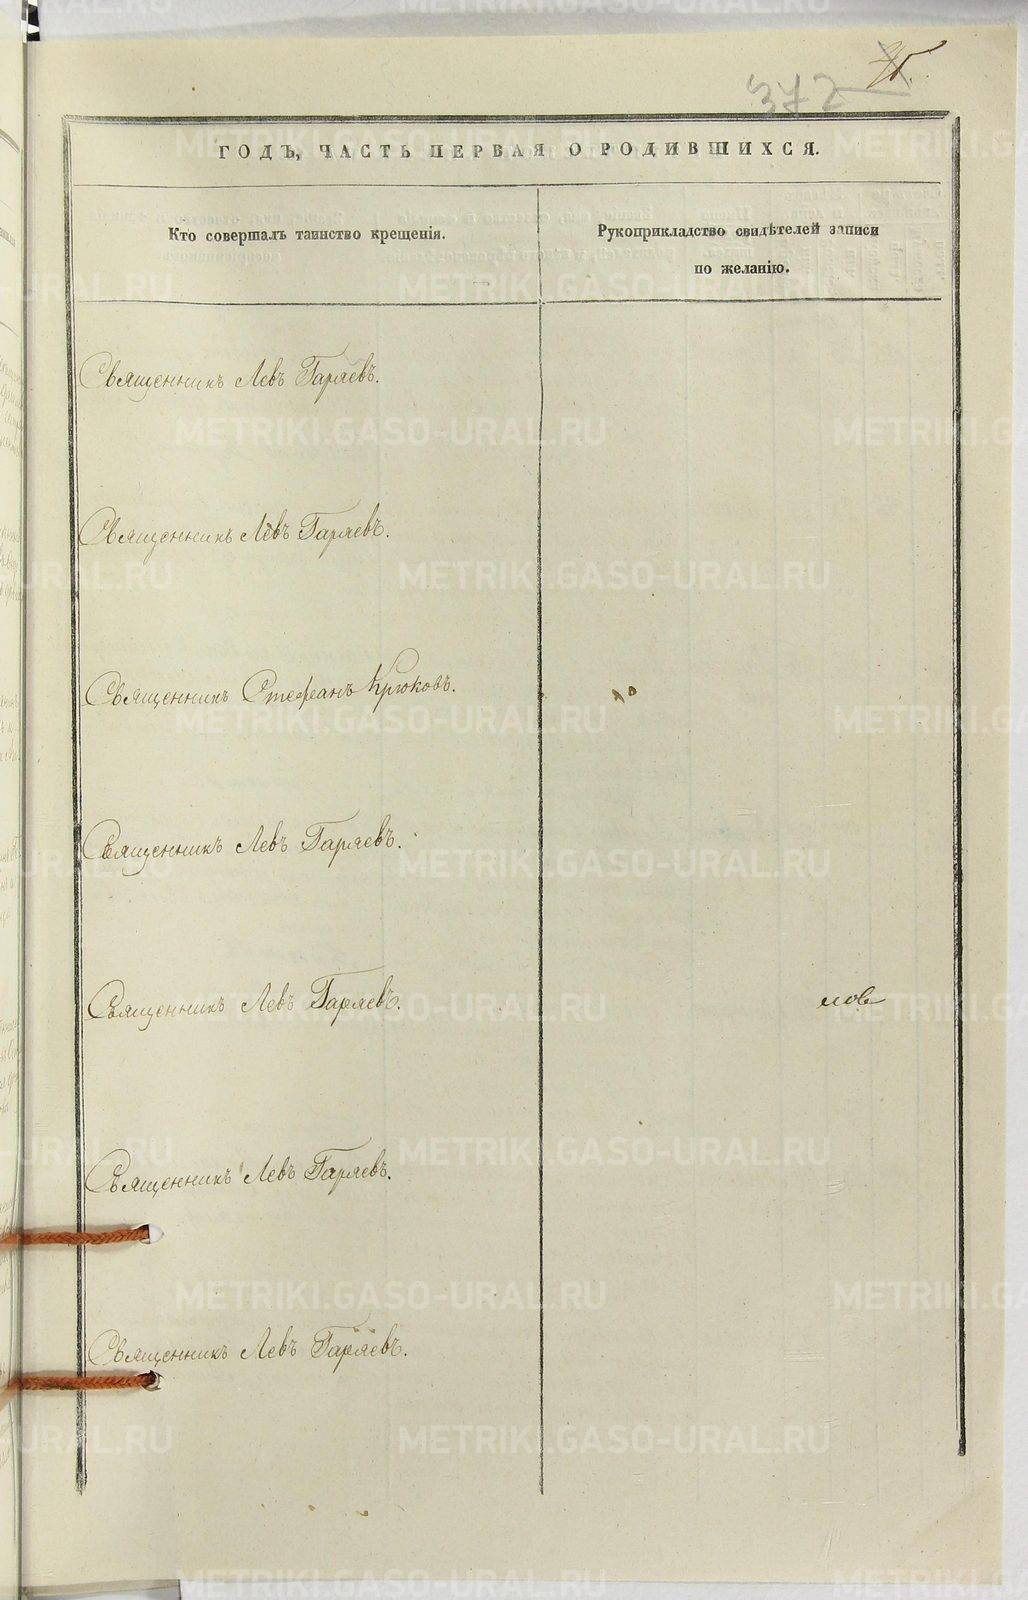 372
ГОДЪ, ЧАСТЬ ПЕРВАЯ О РОДИВШИХСЯ.
Кто совершалъ таинство крещенія.
Рукоприкладство свидѣтелей записи
по желанію.
Священникъ Левъ Гаряевъ.
Священникъ Левъ Гаряевъ.
Священникъ Стефанъ Крюковъ.
Священникъ Левъ Гаряевъ.
Священникъ Левъ Гаряевъ.
Священникъ Левъ Гаряевъ.
Священникъ Левъ Гаряевъ.
METRIKI.GASO-URAL.RU